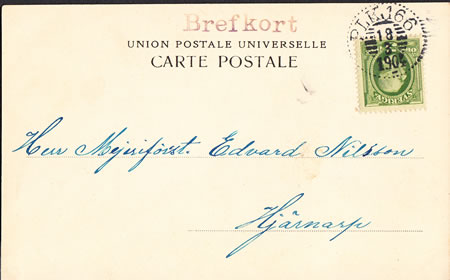 Brefkort
UNION POSTALE UNIVERSELLE
CARTE POSTALE
PLK 166
18
3
190
SVERIGE
Herr Mejeriförest. Edvard Nilsson
Hjärnarp